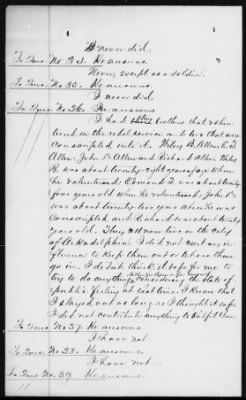 I never did.
To Ques. No. 34. He answers
Never, except as a soldier.
To Ques. No. 35. He answers.
I never did
To Ques. No. 36. He answers
I had brothers that volun-
teered in the rebel service and two that were
conscripted into it. Wiley B. Allen E. T.
Allen, John B. Allen and Richard Allen. Wiley
B. was about twenty eight years of age when
he volunteered Edmond T. was about twenty
four years old when he volunteered & John B.
was about twenty two years when he was
Conscripted and Richard was about twenty
years old. They all now live in the City
of Arkadelphia. I did not exert any in-
fluence to keep them out or to have them
go in. I did not think it safe for me to
try to do anything considering the state of
public feeling at that time. I know that
I stayed out as long as I thought it safe
I did not contribute anything to outfit them
To Ques. No. 37. He answers
I have not
To Ques. No. 38. He answers.
I have not
To Ques. No. 39. He answers